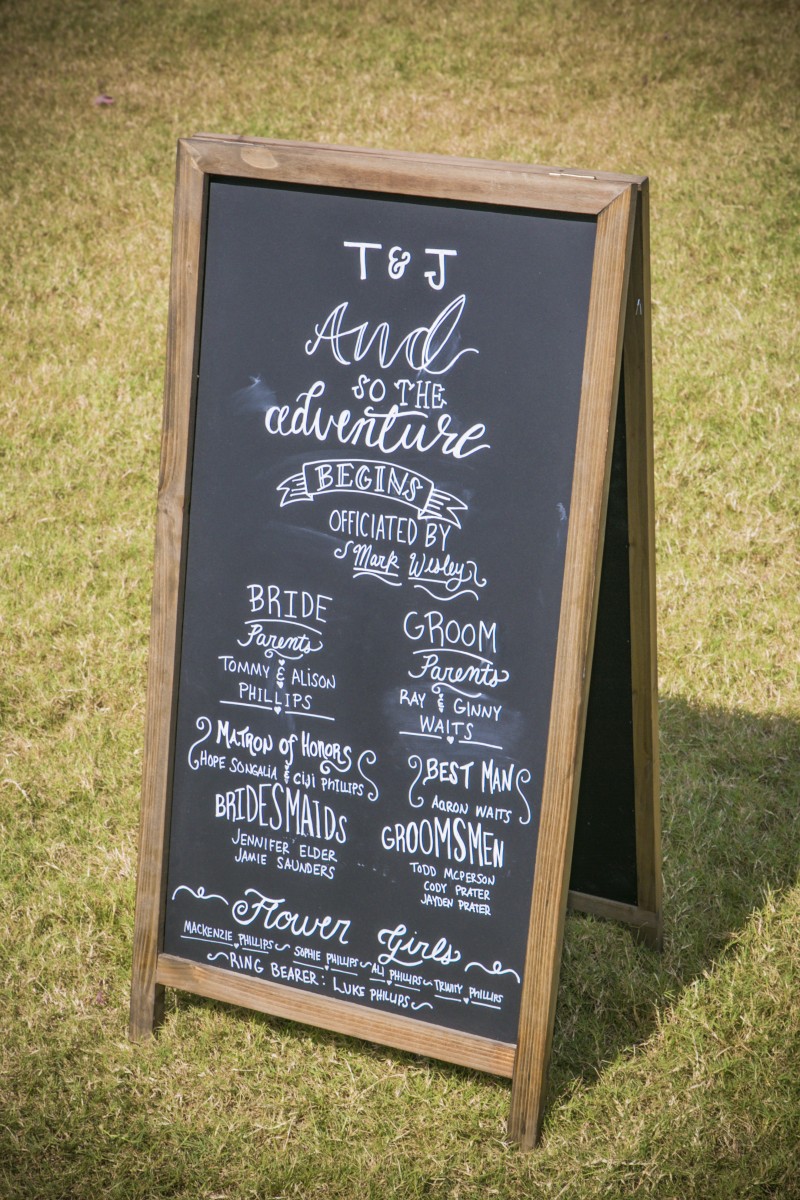 T & J
And
SO THE
adventure
BEGINS
OFFICIATED BY
Mark Wesley
BRIDE
Parents
TOMMY & ALISON
PHILLIPS
MATRON of HONORS
HOPE SONGALIA & CIJI PHILLIPS
BRIDESMAIDS
JENNIFER ELDER
JAMIE SAUNDERS
GROOM
Parents
RAY & GINNY
WAITS
BEST MAN
AARON WAITS
GROOMSMEN
TODD MCPERSON
CODY PRATER
JAYDEN PRATER
Flower Girls
MACKENZIE PHILLIPS SOPHIE PHILLIPS ALI PHILLIPS TRINITY PHILLIPS
RING BEARER: LUKE PHILLIPS